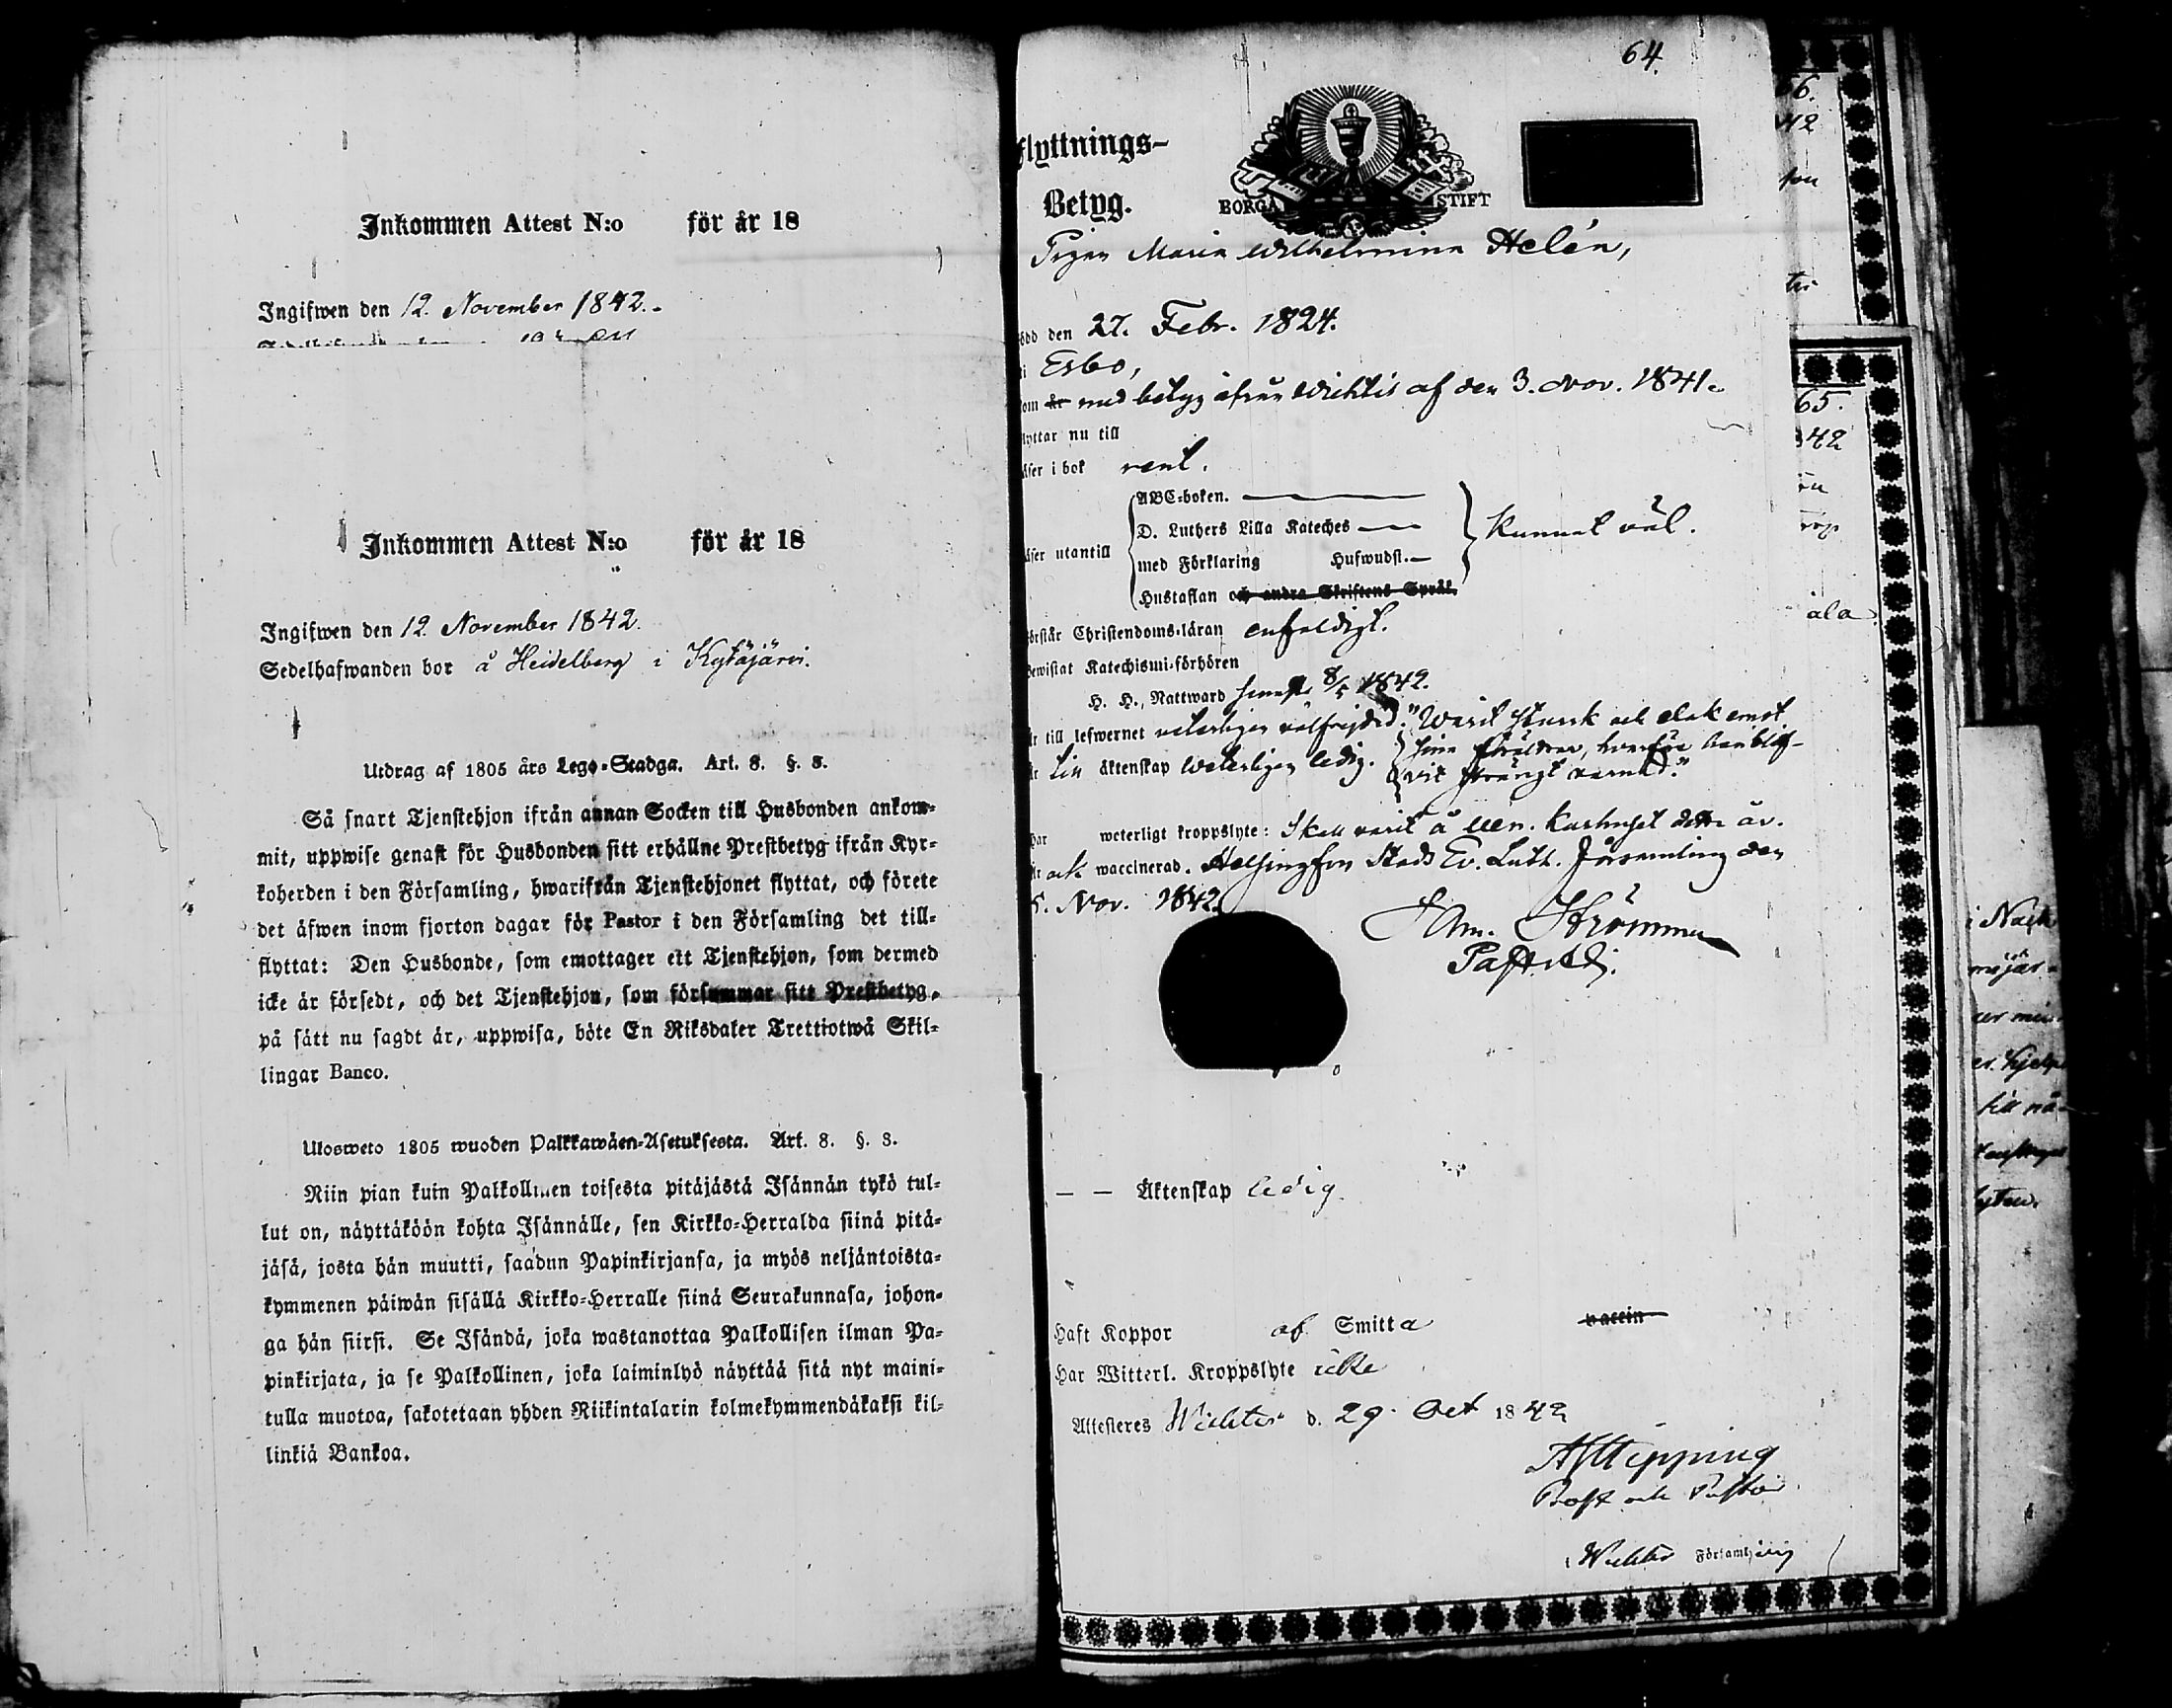 Inkommen Attest N:o för år 18
Ingifwen den 12. November 1842.
Inkommen Attest N:o för år 18
Ingifwen den 12. November 1842.
Sedelhafwanden bor å Heidelberg i Kytäjärvi.
Utdrag af 1805 års Lego-Stadga. Art. 8. §. 8.
Så snart Tjenstehjon ifrån annan Socken till Husbonden ankom-
mit, uppwise genast för Husbonden sitt erhållne Prestbetyg ifrån Kyr-
koherden i den Församling, hwarifrån Tjenstehjonet flyttat, och förete
det äfwen inom fjorton dagar för Pastor i den Församling det till-
flyttat: Den Husbonde, som emottager ett Tjenstehjon, som dermed
icke är försedt, och det Tjenstehjon, som försummar sitt Prestbetyg,
på sätt nu sagdt är, uppwisa, böte En Riksdaler Trettiotwå Skil-
lingar Banco.
Ulosweto 1805 wuoden Palkkawäen-Asetuksesta. Art. 8. §. 8.
Niin pian kuin Palkollinen toisesta pitäjästä Isännän tykö tul-
lut on, näyttäköön kohta Isännälle, sen Kirkko-Herralda siinä pitä-
jäsä, josta hän muutti, saadun Papinkirjansa, ja myös neljäntoista-
kymmenen päiwän sisällä Kirkko-Herralle siinä Seurakunnasa, johon-
ga hän siirsi. Se Isändä, joka wastanottaa Palkollisen ilman Pa-
pinkirjata, ja se Palkollinen, joka laiminlyö näyttää sitä nyt maini-
tulla muotoa, sakotetaan yhden Riikintalarin kolmekymmendäkaksi kil-
linkiä Bankoa.
64.
flyttnings-
Betyg.
BORGÅ STIFT
Pigan Maria Wilhelmina Helén,
ödd den 27. Febr. 1824.
i Esbo,
om är med betyg ifrån Wichtis af den 3. Nov. 1841.
lyttar nu till
äser i bok rent.
ABC-boken.
D. Luthers Lilla Kateches
äser utantill
med Förklaring Hufwudst.
Hustaflan och andra Skriftens Språk.
Kunnat väl.
örstår Christendoms-läran enfaldigt.
Bewistat Katechismi-förhören
H. H., Nattward senast 8/5 1842.
är till lefwernet veterligen välfrejdad. "Warit stursk och elak emot
är till äktenskap weterligen ledig. sina föräldrar, hvarföre hon blif-
vit strängt varnad."
har weterligt kroppslyte: Skall varit å Ven. Kurhuset detta år.
är ock waccinerad. Helsingfors Stads Ev. Luth. Församling den
5. Nov. 1842.
Strömmer
— — Äktenskap ledig.
Haft Koppor af Smitta vaccin
Har Witterl. Kroppslyte icke
Attesteras Wichtis d. 29. Oct 1842
Prost och Pastor
i Wichtis Församling
66.
42
65.
42
ala
i Nach
till nå-